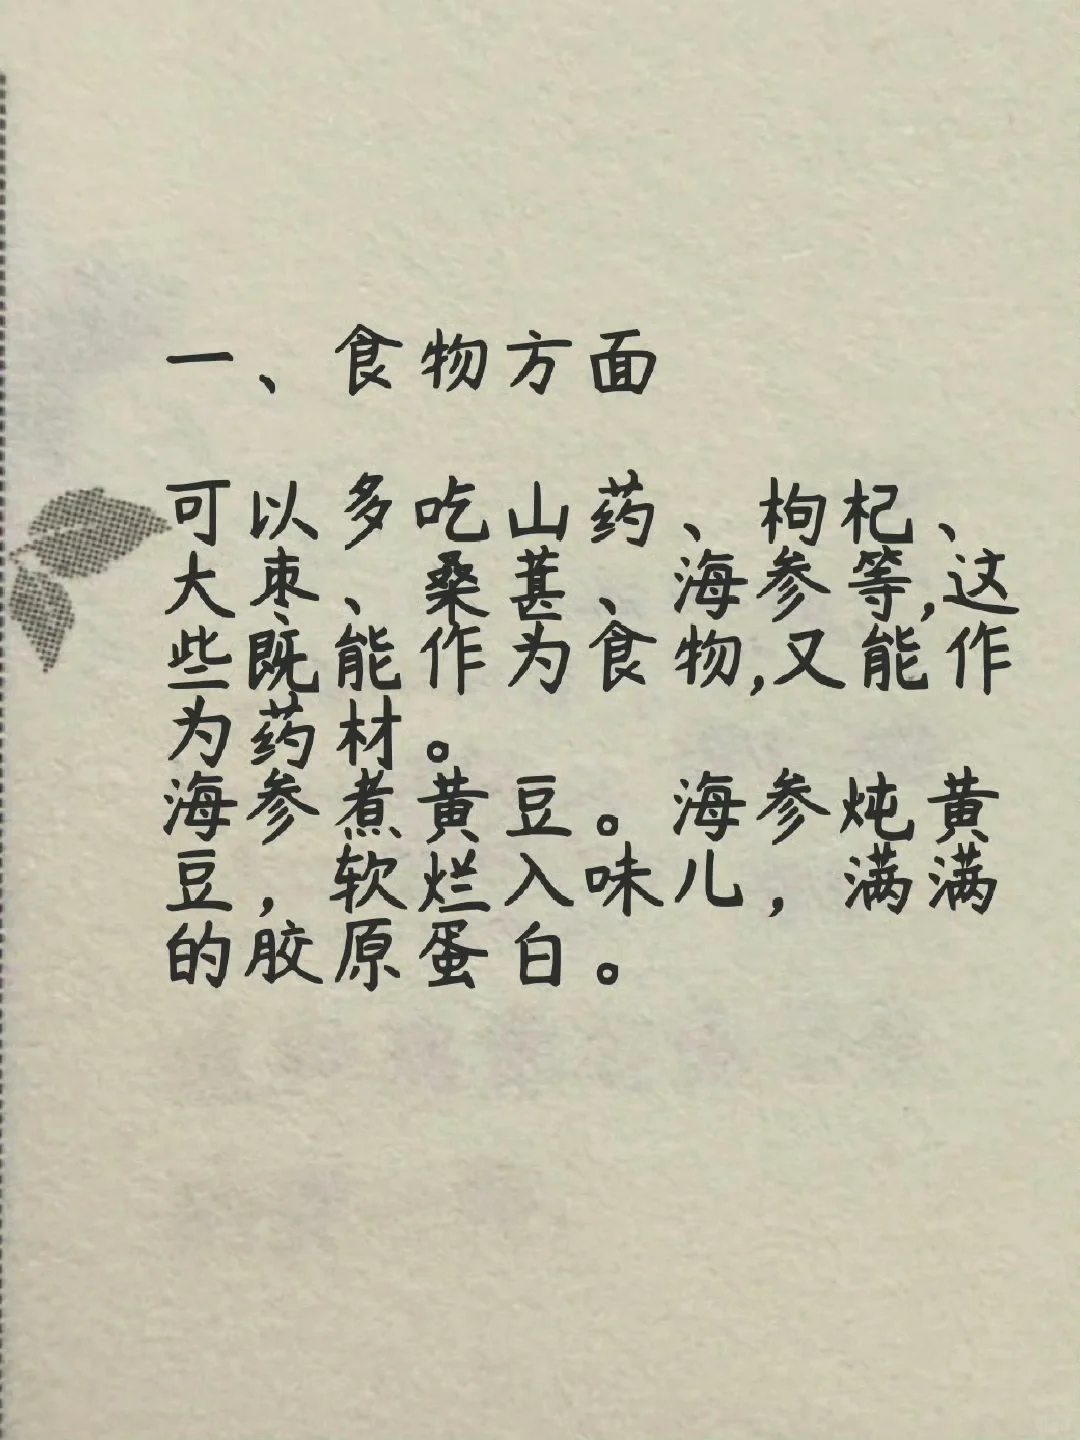 一、食物方面
可以多吃山药、枸杞、
大枣、桑葚、海参等,这
些既能作为食物,又能作
为药材。
海参煮黄豆。海参炖黄
豆，软烂入味儿，满满
的胶原蛋白。